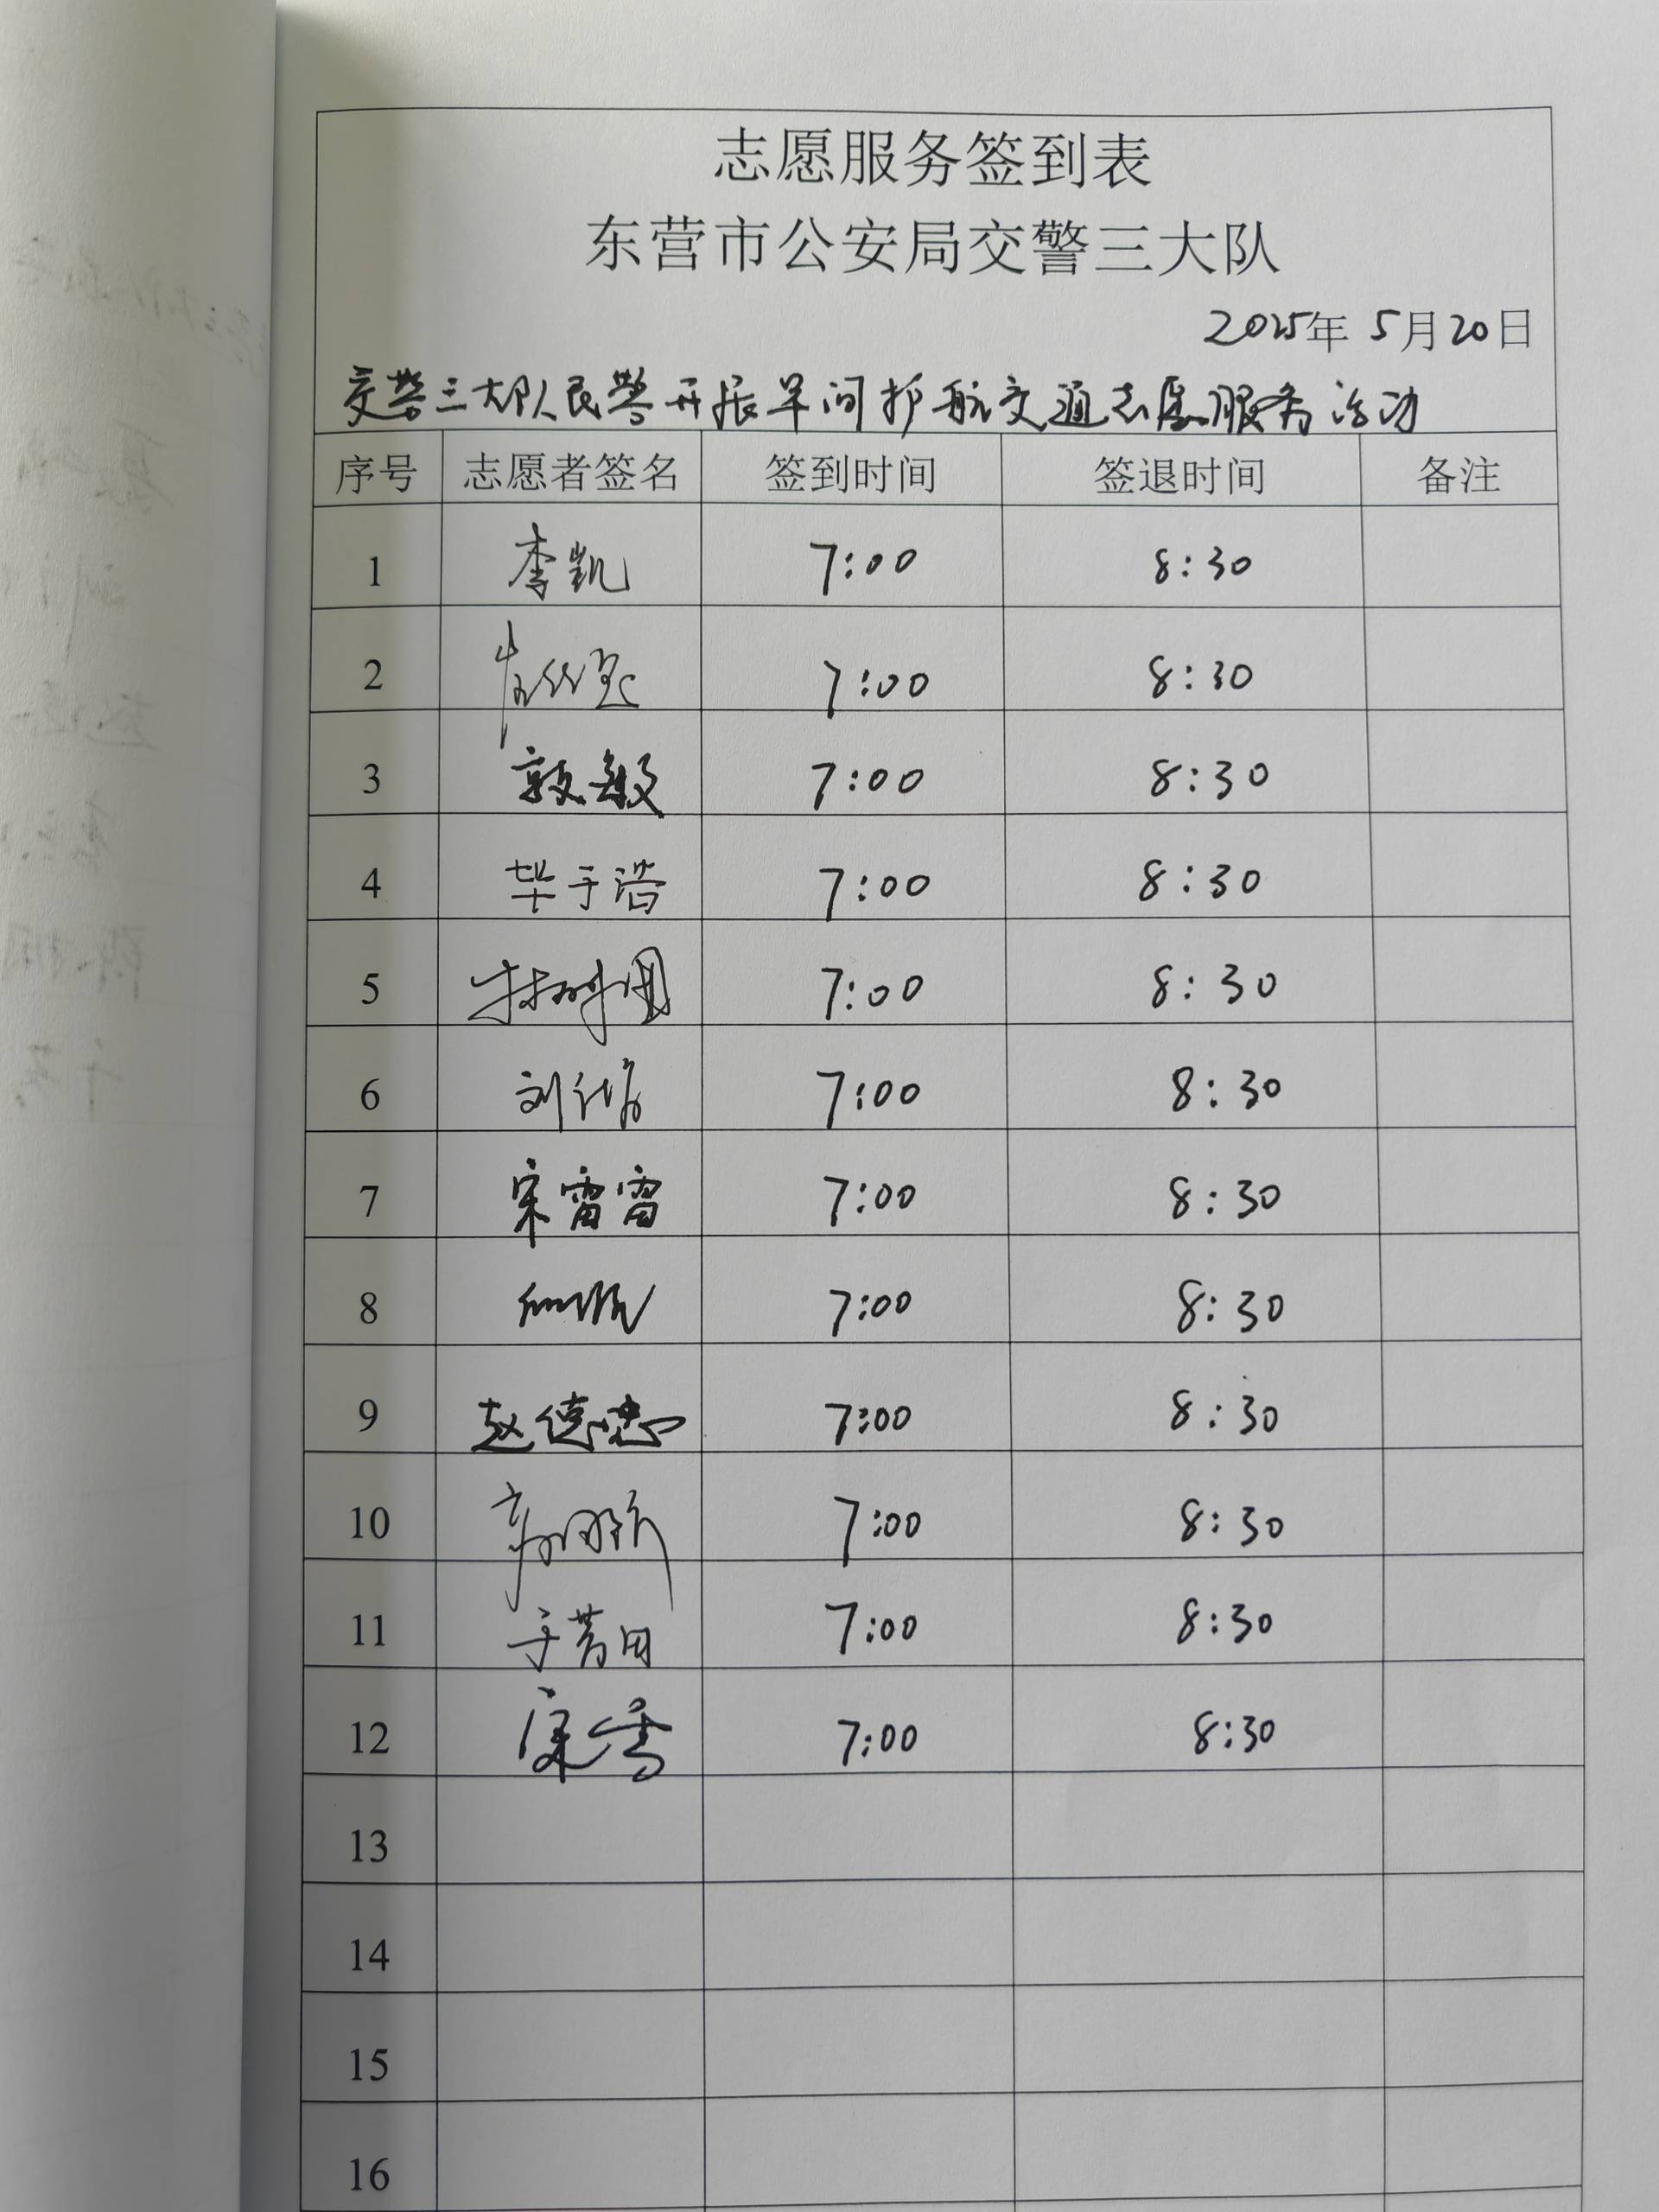 志愿服务签到表
东营市公安局交警三大队
2025年 5月20日
交警三大队民警开展早间护航交通志愿服务活动
序号 志愿者签名 签到时间 签退时间 备注
1 李凯 7:00 8:30
2 7:00 8:30
3 郭敏 7:00 8:30
4 毕于浩 7:00 8:30
5 7:00 8:30
6 刘 7:00 8:30
7 宋雷雷 7:00 8:30
8 7:00 8:30
9 赵德忠 7:00 8:30
10 7:00 8:30
11 7:00 8:30
12 7:00 8:30
13
14
15
16